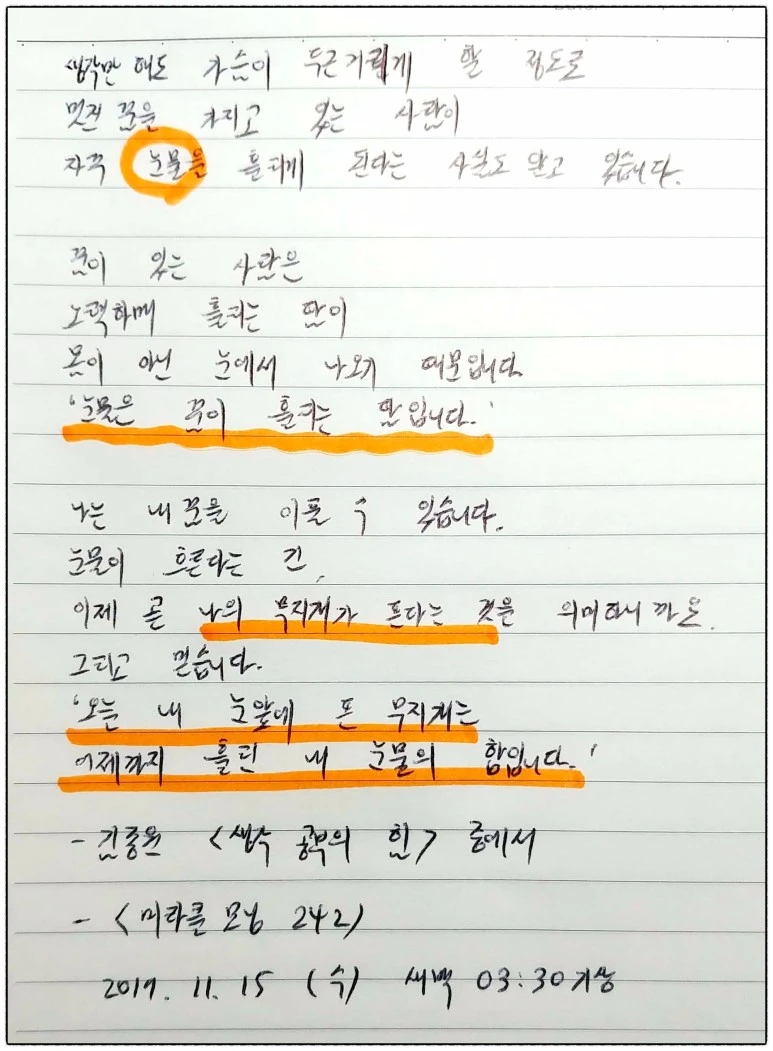 생각만 해도 가슴이 두근거리게 할 정도로
멋진 꿈을 가지고 있는 사람이
자꾸 눈물을 흘리게 된다는 사실도 알고 있습니다.
꿈이 있는 사람은
노력하며 흘리는 땀이
몸이 아닌 눈에서 나오기 때문입니다
'눈물은 꿈이 흘리는 땀입니다.'
나는 내 꿈을 이룰 수 있습니다.
눈물이 흐른다는 건,
이제 곧 나의 무지개가 뜬다는 것을 의미하니까요.
그리고 믿습니다.
'오늘 내 눈앞에 뜬 무지개는
어제까지 흘린 내 눈물의 합입니다.'
- 김종원 <생각 공부의 힘> 중에서
- <미라클 모닝 242>
2017. 11. 15 (수) 새벽 03:30기상